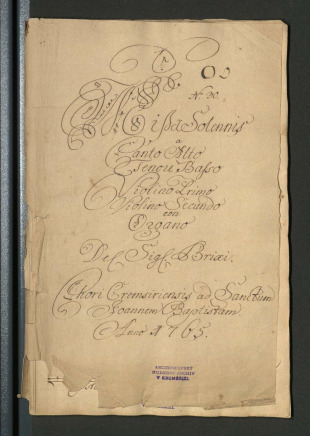 N: 30.
Missa Solennis
a
Canto Alto
Tenore Basso
Violino Primo
Violino Secundo
con
Organo
Del Sig: Brixi.
Chori Cremsiriensis ad Sanctum
Joannem Baptistam.
Anno 1765.
ARCIBISKUPSKÝ
HUDEBNÍ ARCHIV
V KROMĚŘÍŽI